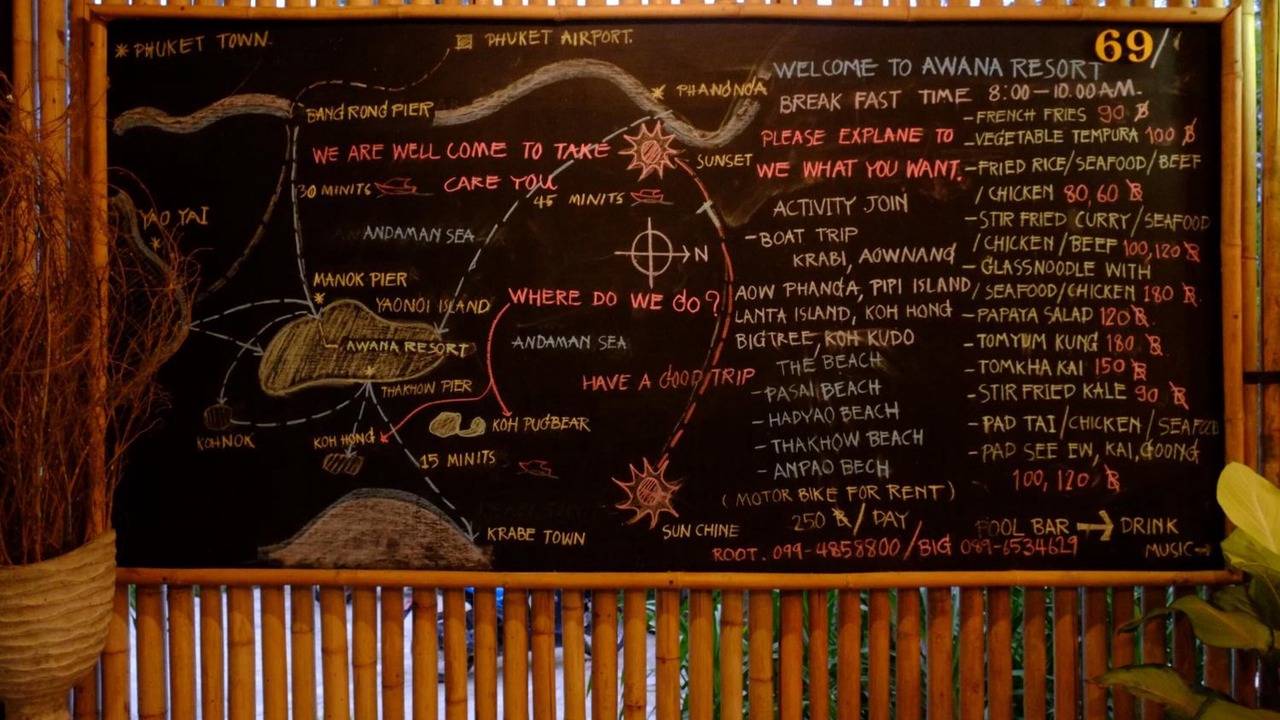 69/
* PHUKET TOWN.
PHUKET AIRPORT.
BANGRONG PIER
* PHANGNGA
WE ARE WELL COME TO TAKE
CARE YOU
SUNSET
30 MINITS
45 MINITS
YAO YAI
ANDAMAN SEA
N
MANOK PIER
YAONOI ISLAND
WHERE DO WE do?
AWANA RESORT
ANDAMAN SEA
THAKHOW PIER
HAVE A GOOD TRIP
KOHNOK
KOH HONG
KOH PUGBEAR
15 MINITS
KRABE TOWN
SUN CHINE
WELCOME TO AWANA RESORT
BREAK FAST TIME 8:00-10.00 AM.
PLEASE EXPLANE TO
WE WHAT YOU WANT.
ACTIVITY JOIN
-BOAT TRIP
KRABI, AOWNANG
AOW PHANGA, PIPI ISLAND
LANTA ISLAND, KOH HONG
BIGTREE, KOH KUDO
THE BEACH
-PASAI BEACH
-HADYAO BEACH
-THAKHOW BEACH
-ANPAO BECH
(MOTOR BIKE FOR RENT)
250 ฿/DAY
ROOT. 099-4858800/BIG 089-6534629
-FRENCH FRIES 90 ฿
-VEGETABLE TEMPURA 100 ฿
-FRIED RICE/SEAFOOD/BEEF
/CHICKEN 80,60 ฿
-STIR FRIED CURRY/SEAFOOD
/CHICKEN/BEEF 100,120 ฿
-GLASSNOODLE WITH
/SEAFOOD/CHICKEN 180 ฿.
-PAPAYA SALAD 120 ฿.
-TOMYUM KUNG 180 ฿
-TOMKHA KAI 150 ฿
-STIR FRIED KALE 90 ฿
-PAD TAI/CHICKEN/SEAFOOD
-PAD SEE EW, KAI, GOONG
100, 120 ฿
POOL BAR → DRINK
MUSIC →